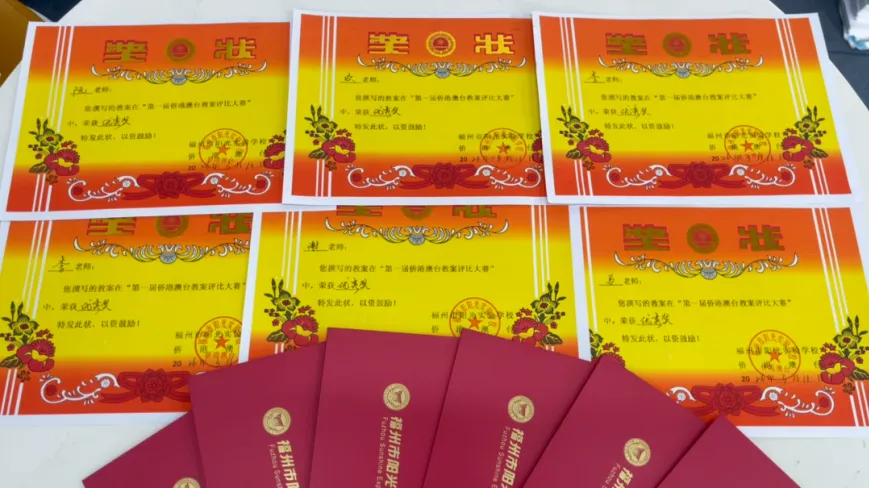 奖状
老师：
您撰写的教案在“第一届侨港澳台教案评比大赛”
中，荣获优秀奖
特发此状，以资鼓励！
福州市阳光实验学校
侨港澳
奖状
老师：
您撰写的教案在“第一届侨港澳台教案评比大赛”
中，荣获优秀奖
特发此状，以资鼓励！
福州市阳光实验学校
侨港澳
奖状
李老师：
您撰写的教案在“第一届侨港澳台教案评比大赛”
中，荣获优秀奖
特发此状，以资鼓励！
福州市阳光实验学校
侨港澳
奖状
李老师：
您撰写的教案在“第一届侨港澳台教案评比大赛”
中，荣获优秀奖
特发此状，以资鼓励！
福州市阳光实验
侨港澳
奖状
谢老师：
您撰写的教案在“第一届侨港澳台教案评比大赛”
中，荣获优秀奖
特发此状，以资鼓励！
福州市阳光实验学校
奖状
老师：
您撰写的教案在“第一届侨港澳台教案评比大赛”
中，荣获优秀奖
特发此状，以资鼓励！
福州市阳光实验学校
侨港澳
福州市阳
Fuzhou Suns
福州市阳光
Fuzhou Sunshine Exp
福州市阳光
Fuzhou Sunshine
福州
Fuzhou